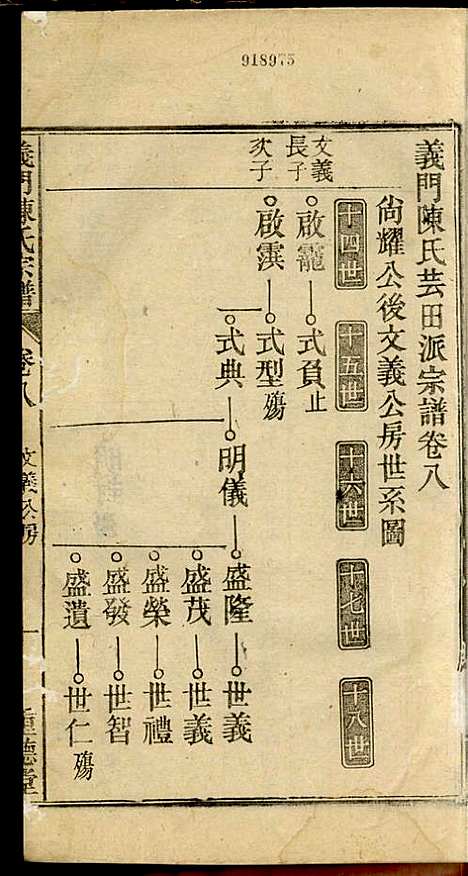 918975
義門陳氏芸田派宗譜卷八
尙耀公後文義公房世系圖
十四世 十五世 十六世 十七世 十八世
文義
長子 啟寵 式負止
次子 啟霟 式型殤
式典 明儀 盛隆 世義
盛茂 世義
盛榮 世禮
盛發 世智
盛遺 世仁殤
義門陳氏宗譜 卷八 文義公房 一 重德堂